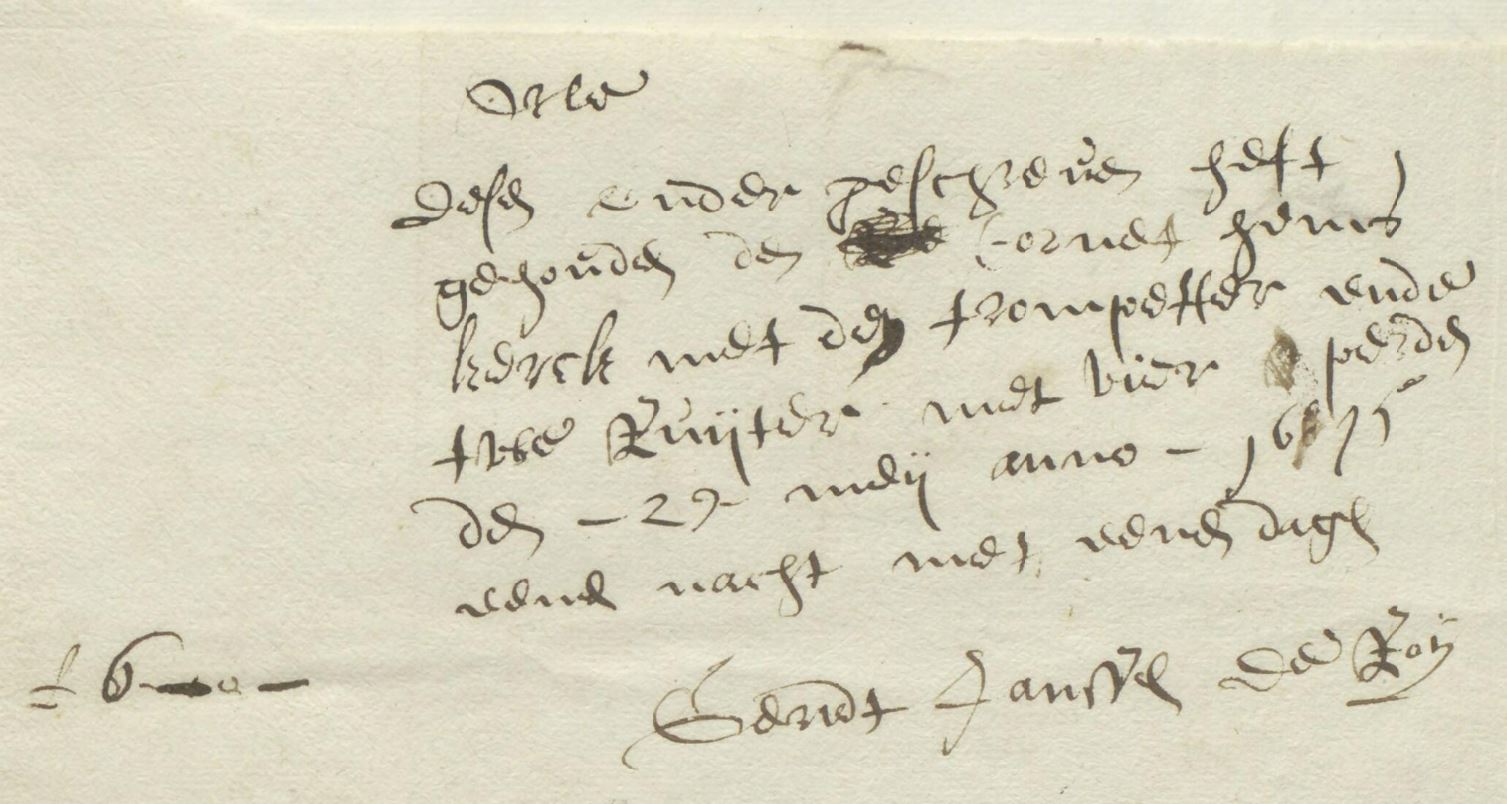 Orle
desen onder gescreven heft
gehouden den cornet hems
kerck met den trompetter ende
twe Ruijter met vier perden
den - 27 - meij anno - 1675
eenen nacht met eenen dagh
f 6 - 0 -
Gerridt Janssen de Roij